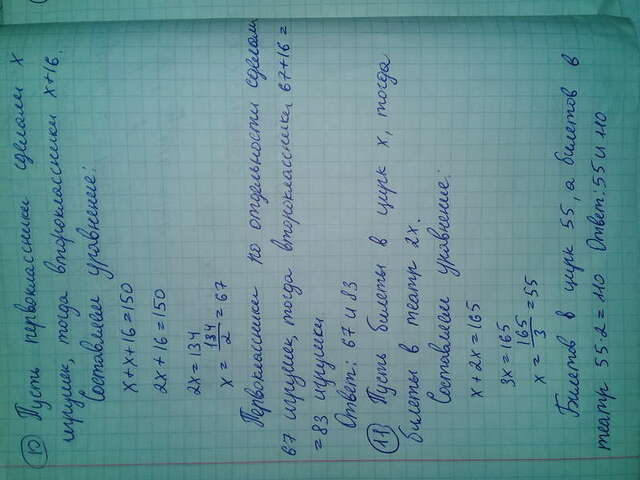 10 Пусть первоклассники сделали x
игрушек, тогда второклассники x+16.
Составляем уравнение:
x+x+16=150
2x+16=150
2x=134
x = 134/2 = 67
Первоклассники по отдельности сделали
67 игрушек, тогда второклассники 67+16=
=83 игрушки
Ответ: 67 и 83
11 Пусть билеты в цирк x, тогда
билеты в театр 2x.
Составляем уравнение:
x+2x=165
3x=165
x = 165/3 = 55
Билетов в цирк 55, а билетов в
театр 55·2=110 Ответ: 55 и 110